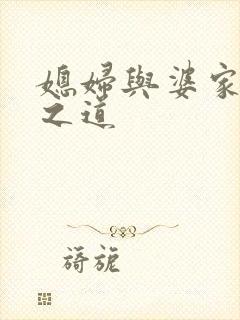 媳婦與婆家
之道
旖旎